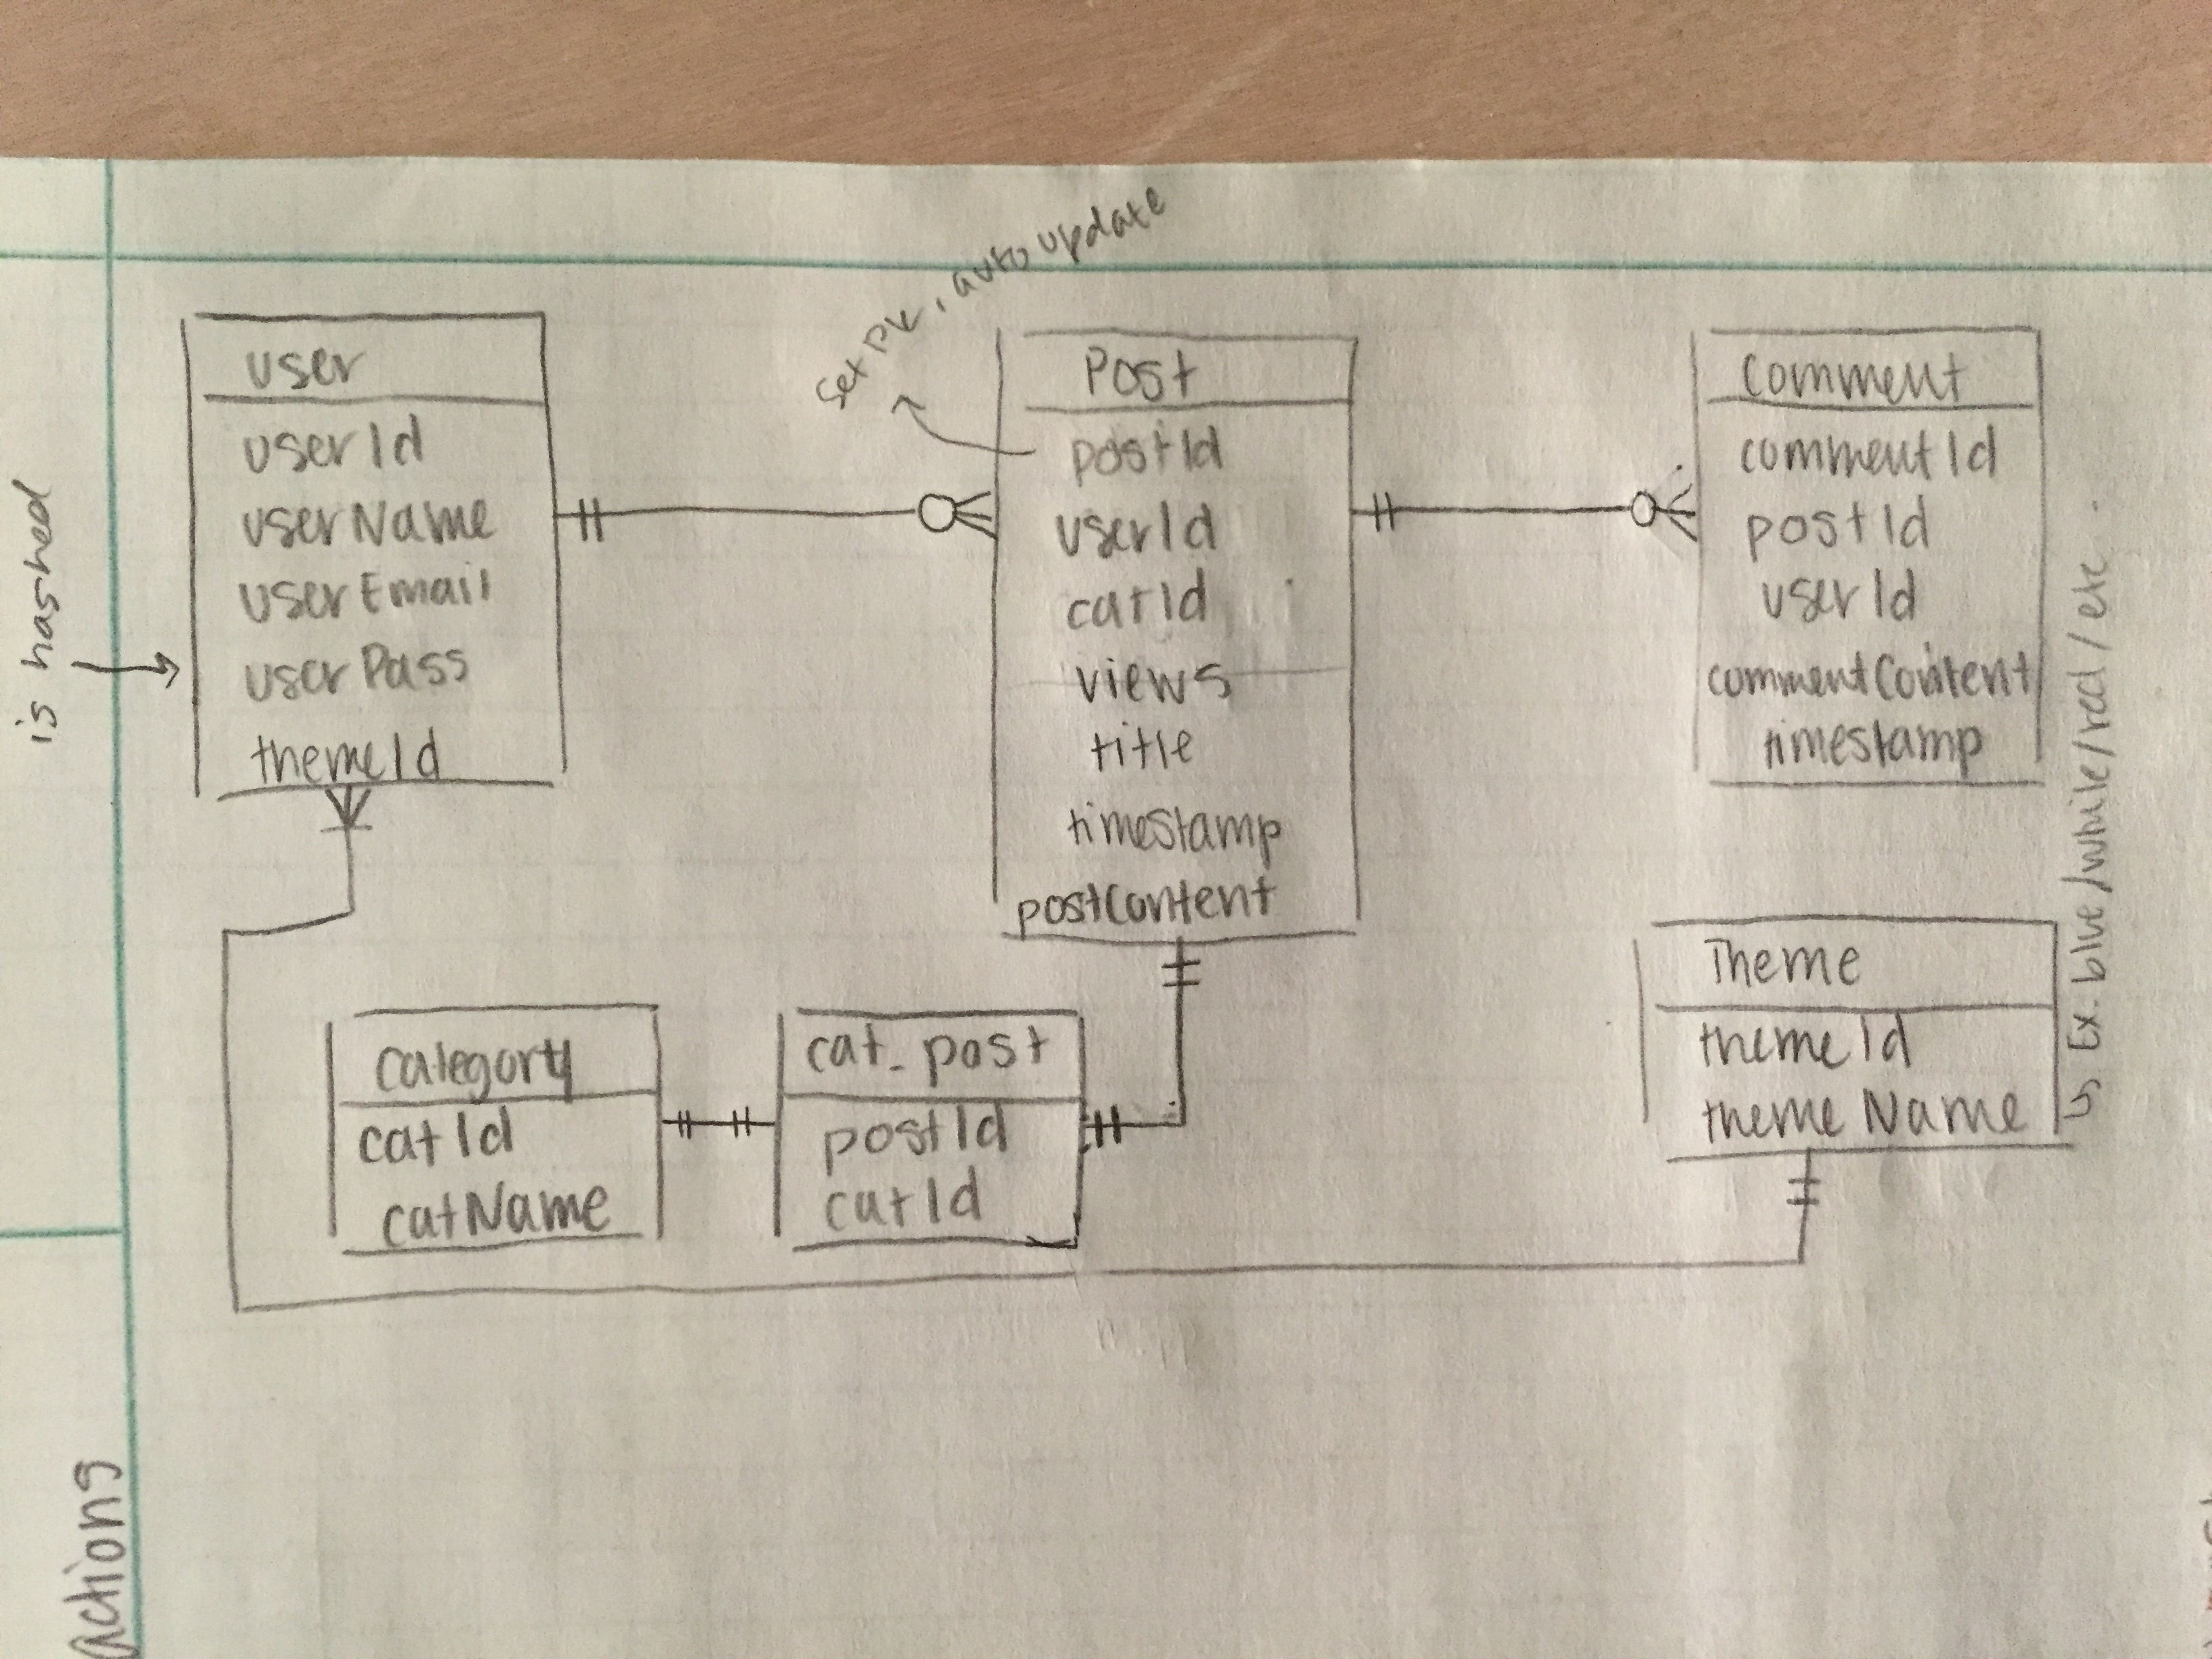 set PK, auto update
user
userId
userName
userEmail
userPass
themeId
is hashed
Post
postId
userId
catId
views
title
timestamp
postContent
comment
commentId
postId
userId
commentContent
timestamp
category
catId
catName
cat_post
postId
catId
Theme
themeId
themeName
Ex. blue/white/red/etc...
actions